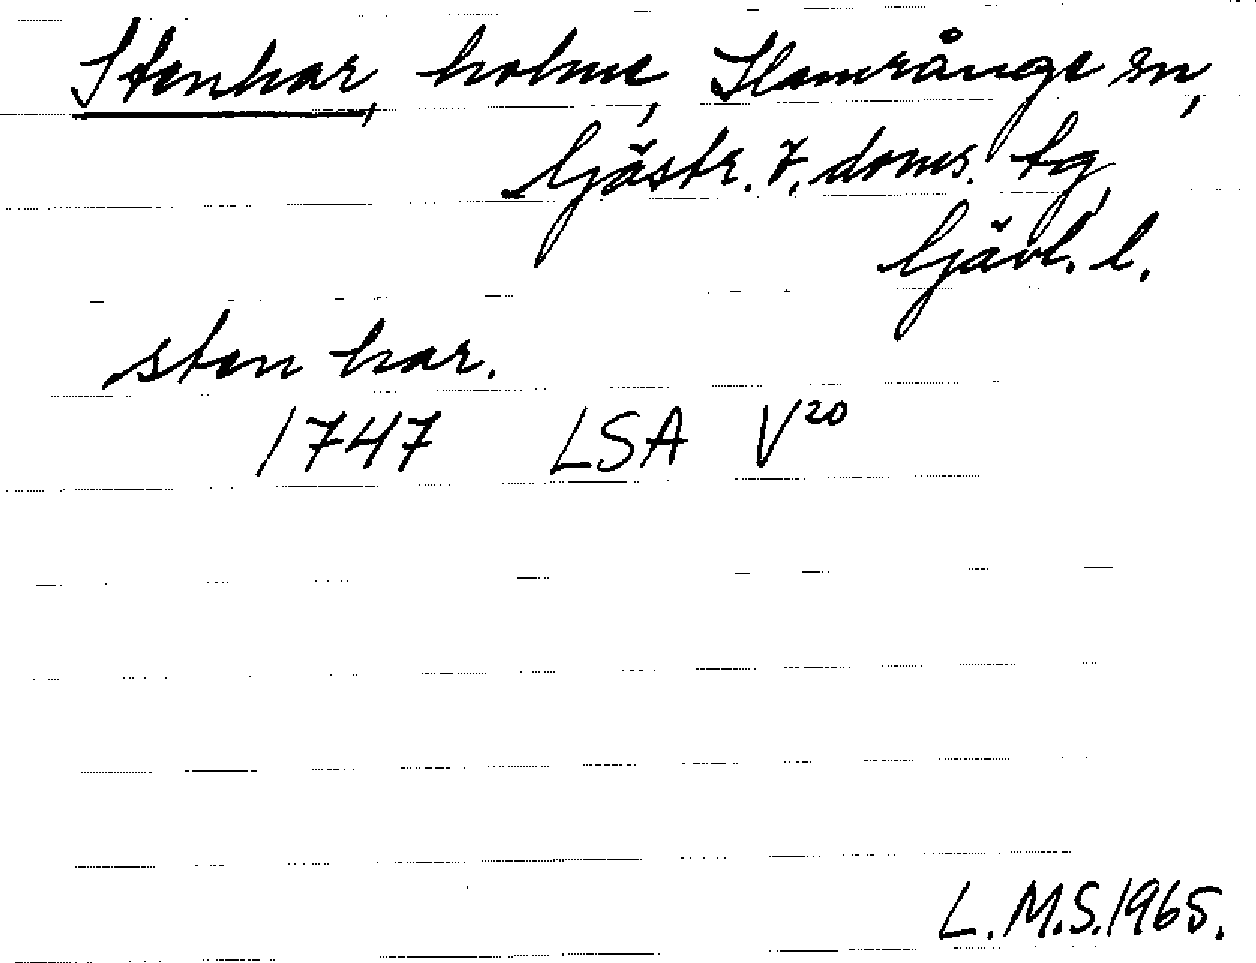 Stenhar, holme, Hamrånge sn,
Gästr. t. doms. tg,
Gävl. l.
sten har.
1747 LSA V20
L.M.S.1965.